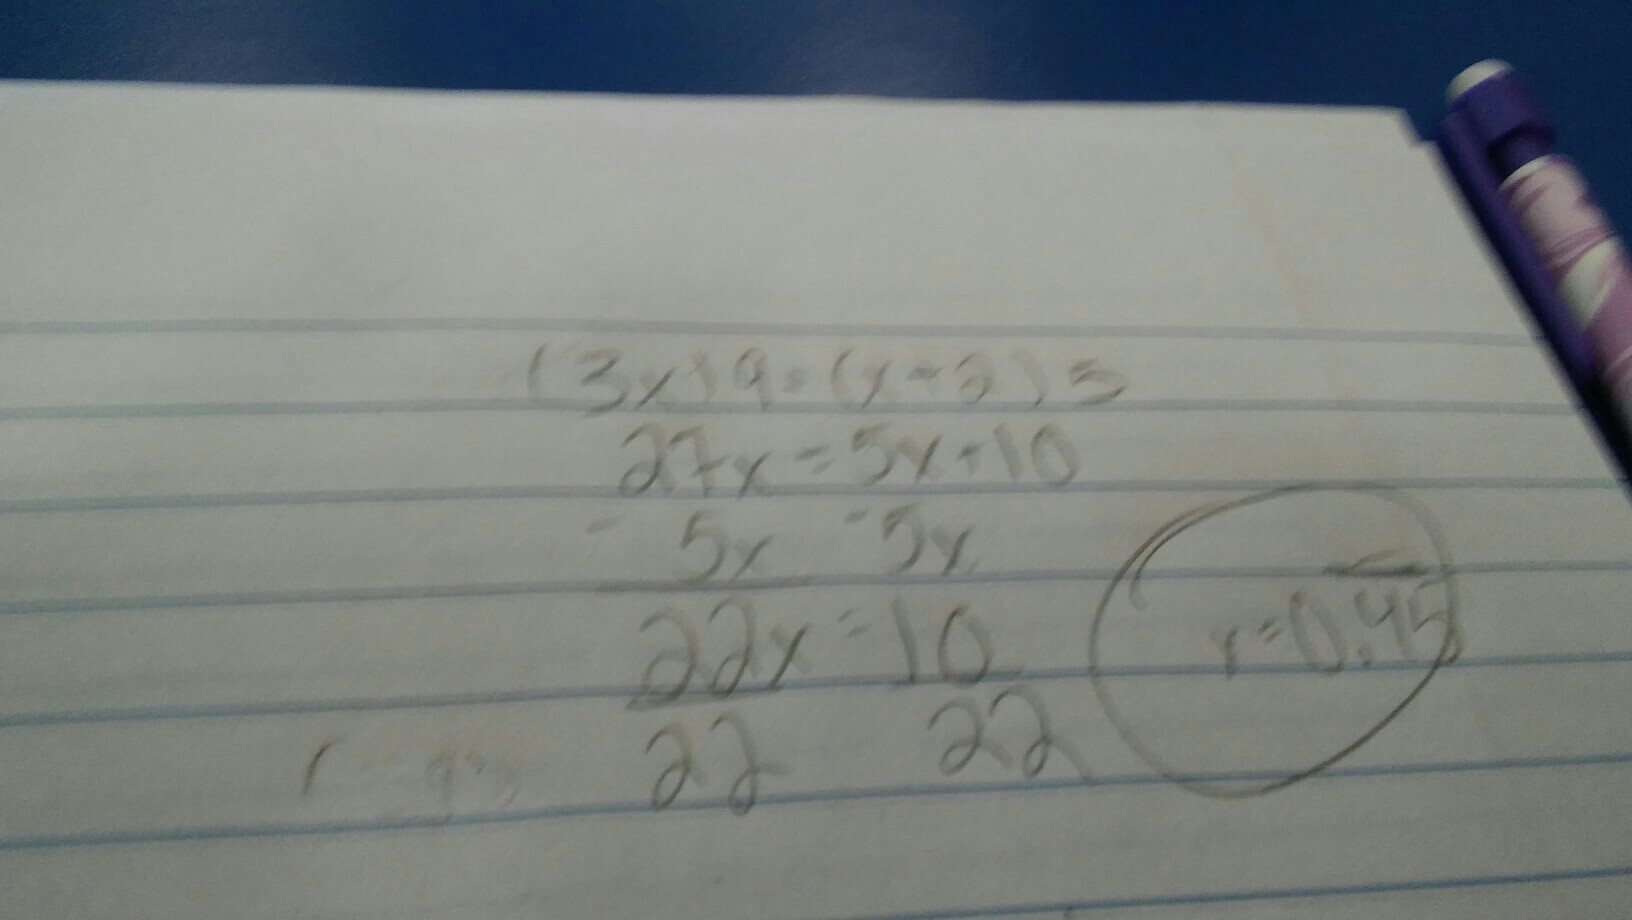 (3x)9=(x+2)5
27x=5x+10
-5x -5x
22x=10
22 22
x=0.45